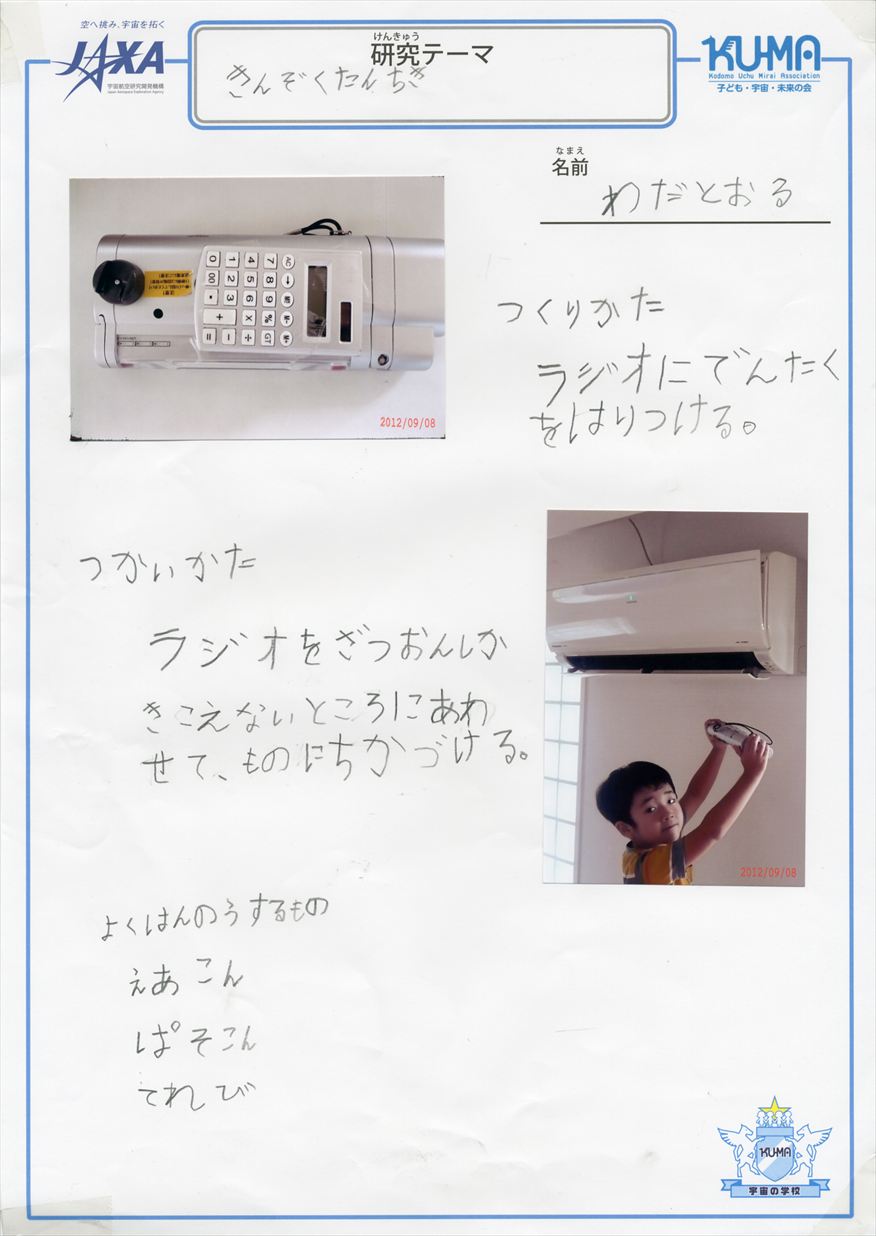 空へ挑み、宇宙を拓く
JAXA
宇宙航空研究開発機構
Japan Aerospace Exploration Agency
けんきゅう
研究テーマ
きんぞくたんちき
KU-MA
Kodomo Uchu Mirai Association
子ども・宇宙・未来の会
なまえ
名前
わだとおる
2012/09/08
つくりかた
ラジオにでんたく
をはりつける。
つかいかた
ラジオをざつおんしか
きこえないところにあわ
せて、ものにちかづける。
2012/09/08
よくはんのうするもの
えあこん
ぱそこん
てれび
KU-MA
宇宙の学校